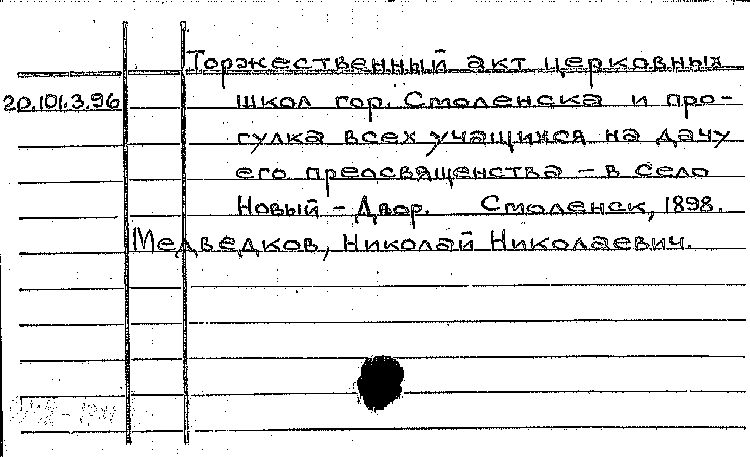 Торжественный акт церковных
20.101.3.96 школ гор. Смоленска и про-
гулка всех учащихся на дачу
его преосвященства – в село
Новый – Двор. Смоленск, 1898.
Медведков, Николай Николаевич.